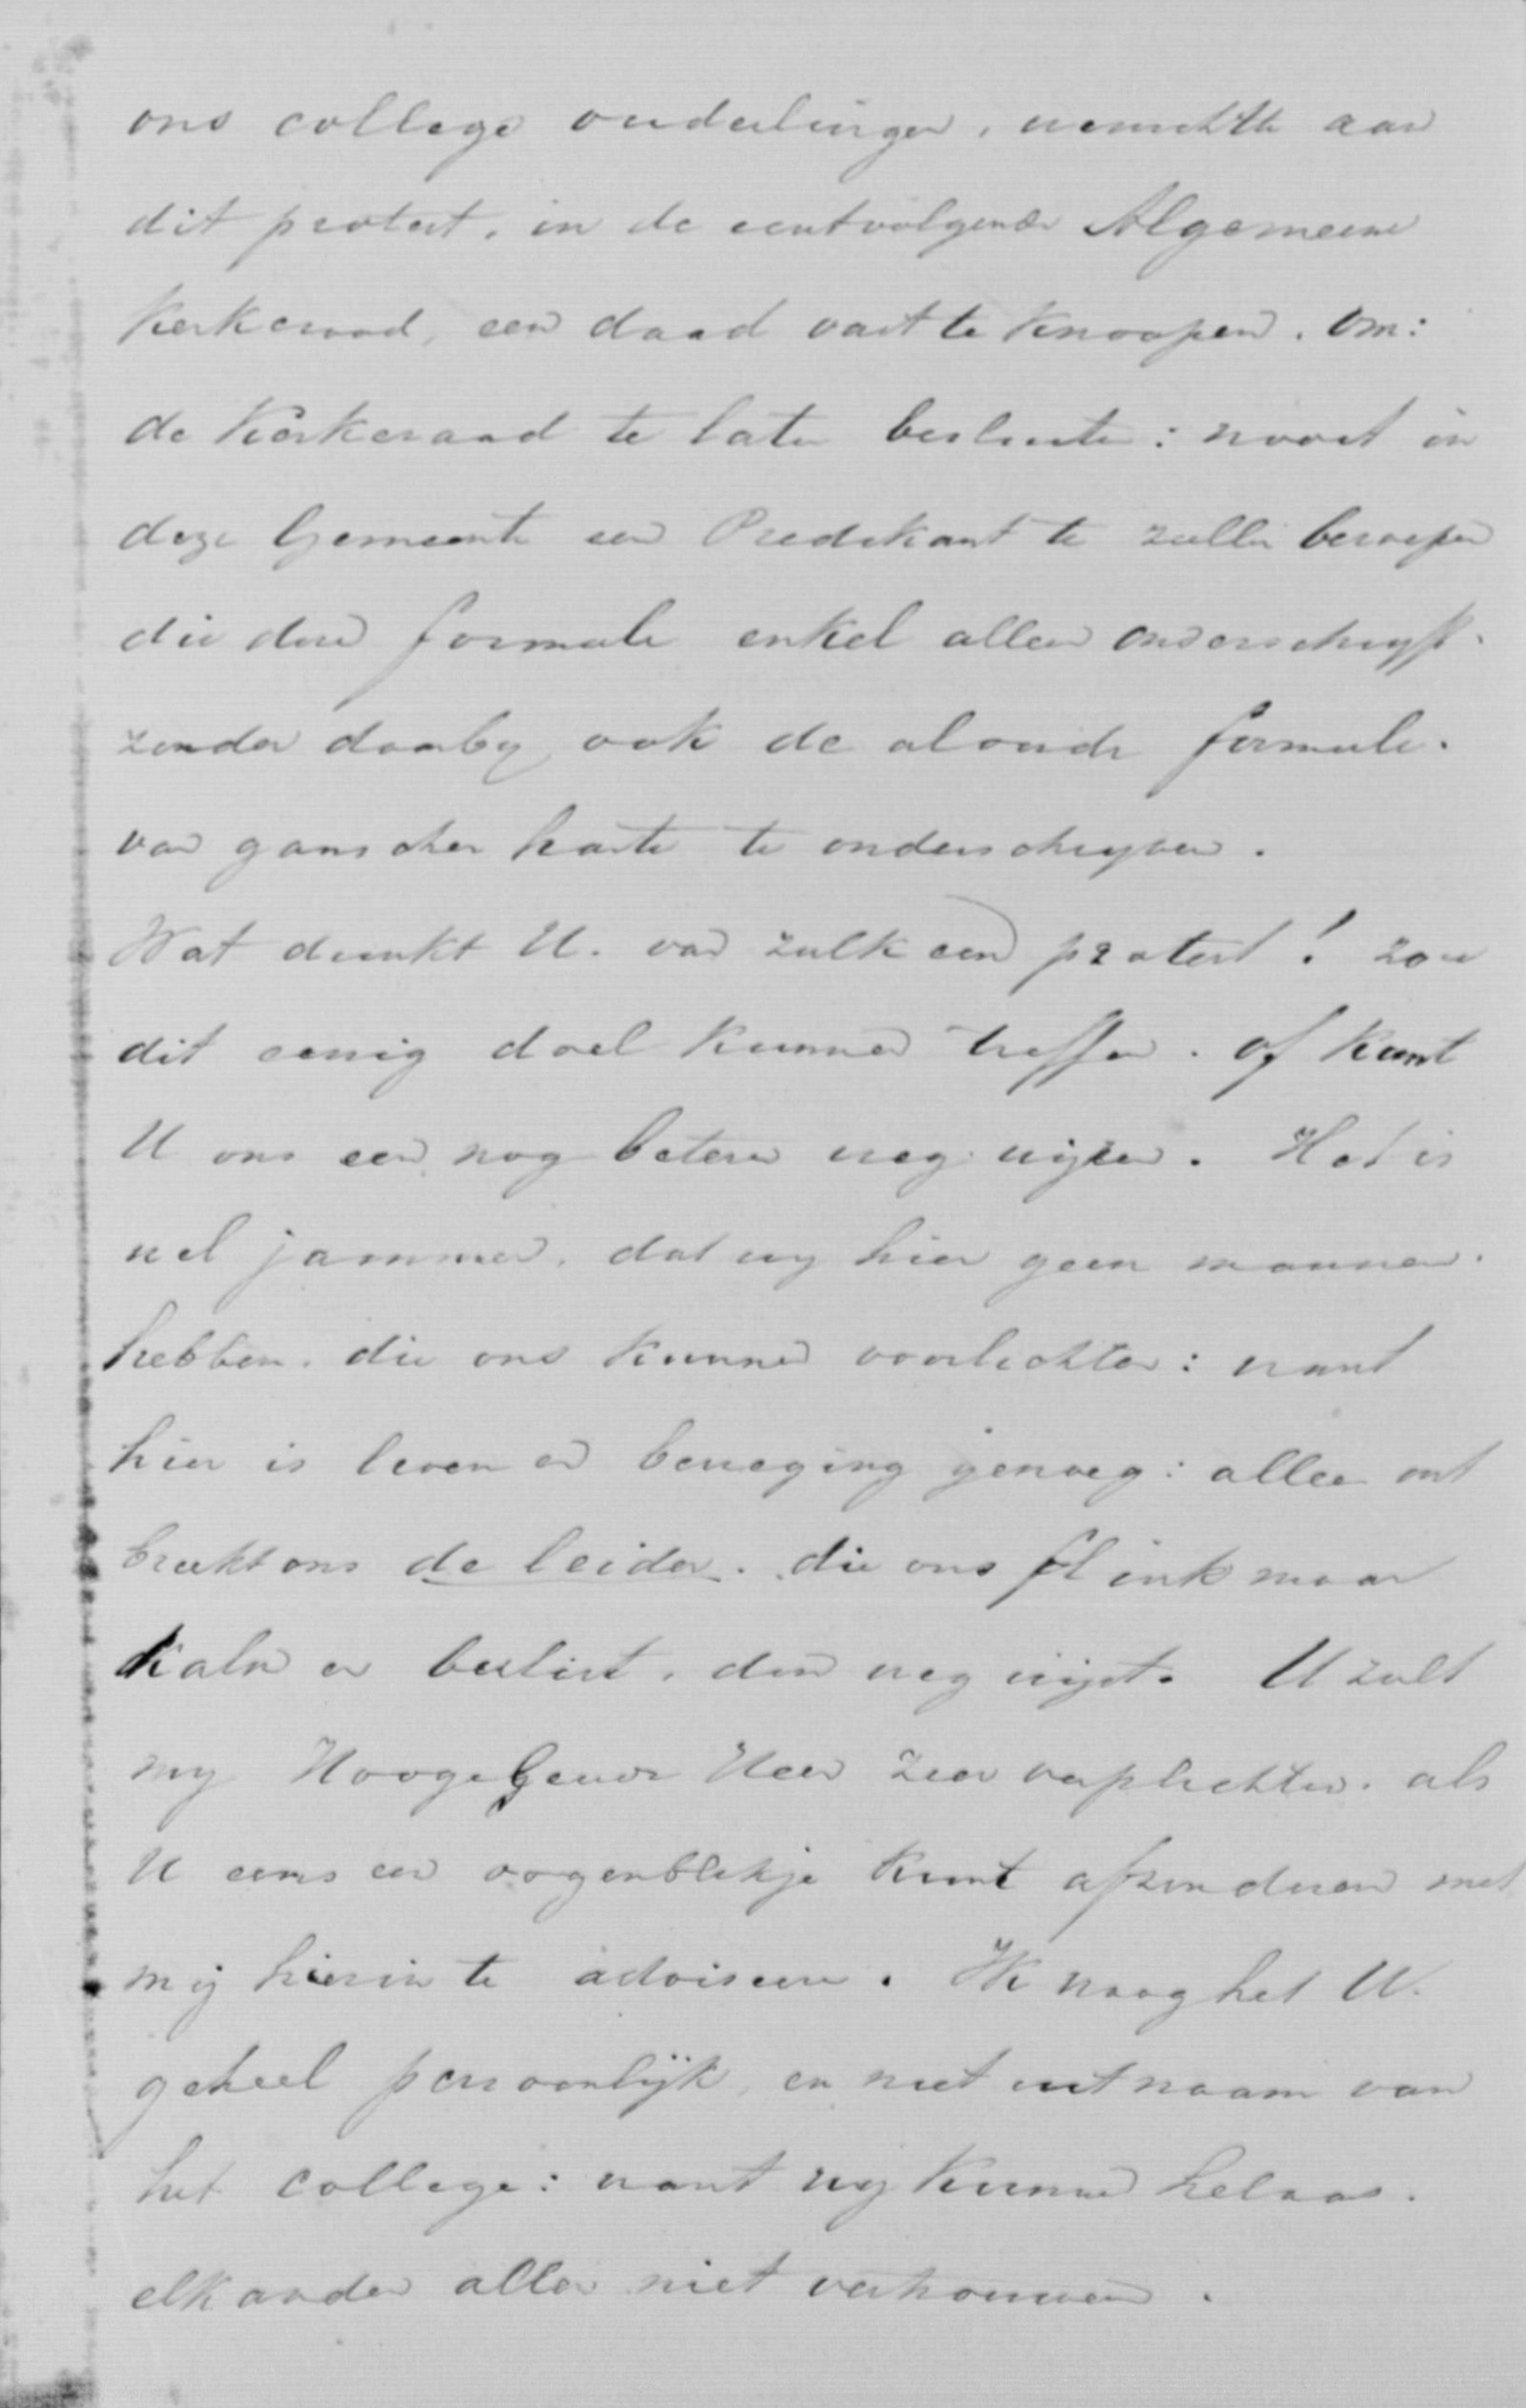 ons college ouderlingen, wenschte aan
dit protest, in de eerstvolgende Algemeene
Kerkeraad, een daad vast te knoopen. om:
de Kerkeraad te laten besluiten: nooit in
deze Gemeente een Predikant te zullen beroepen
die deze formule enkel alleen onderschryft.
zonder daarby ook de aloude formule.
van ganscher harte te onderschryven.
Wat dunkt U. van zulk een protest! zou
dit eenig doel kunnen treffen. of kunt
U ons een nog betere weg wijzen. Het is
wel jammer, dat wy hier geen mannen.
hebben. die ons kunnen voorlichten: want
hier is leven en beweging genoeg: alleen ont
breekt ons de leider. die ons flink maar
kalm en beslist, den weg wijst. U zult
my Hoogegeerde Heer zeer verplichten. als
U eens een oogenblikje kunt afzonderen met
mij hierin te adviseeren. Ik vraag het U.
geheel persoonlijk, en niet uit naam van
het college: want wy kunnen helaas.
elkander allen niet vertrouwen.